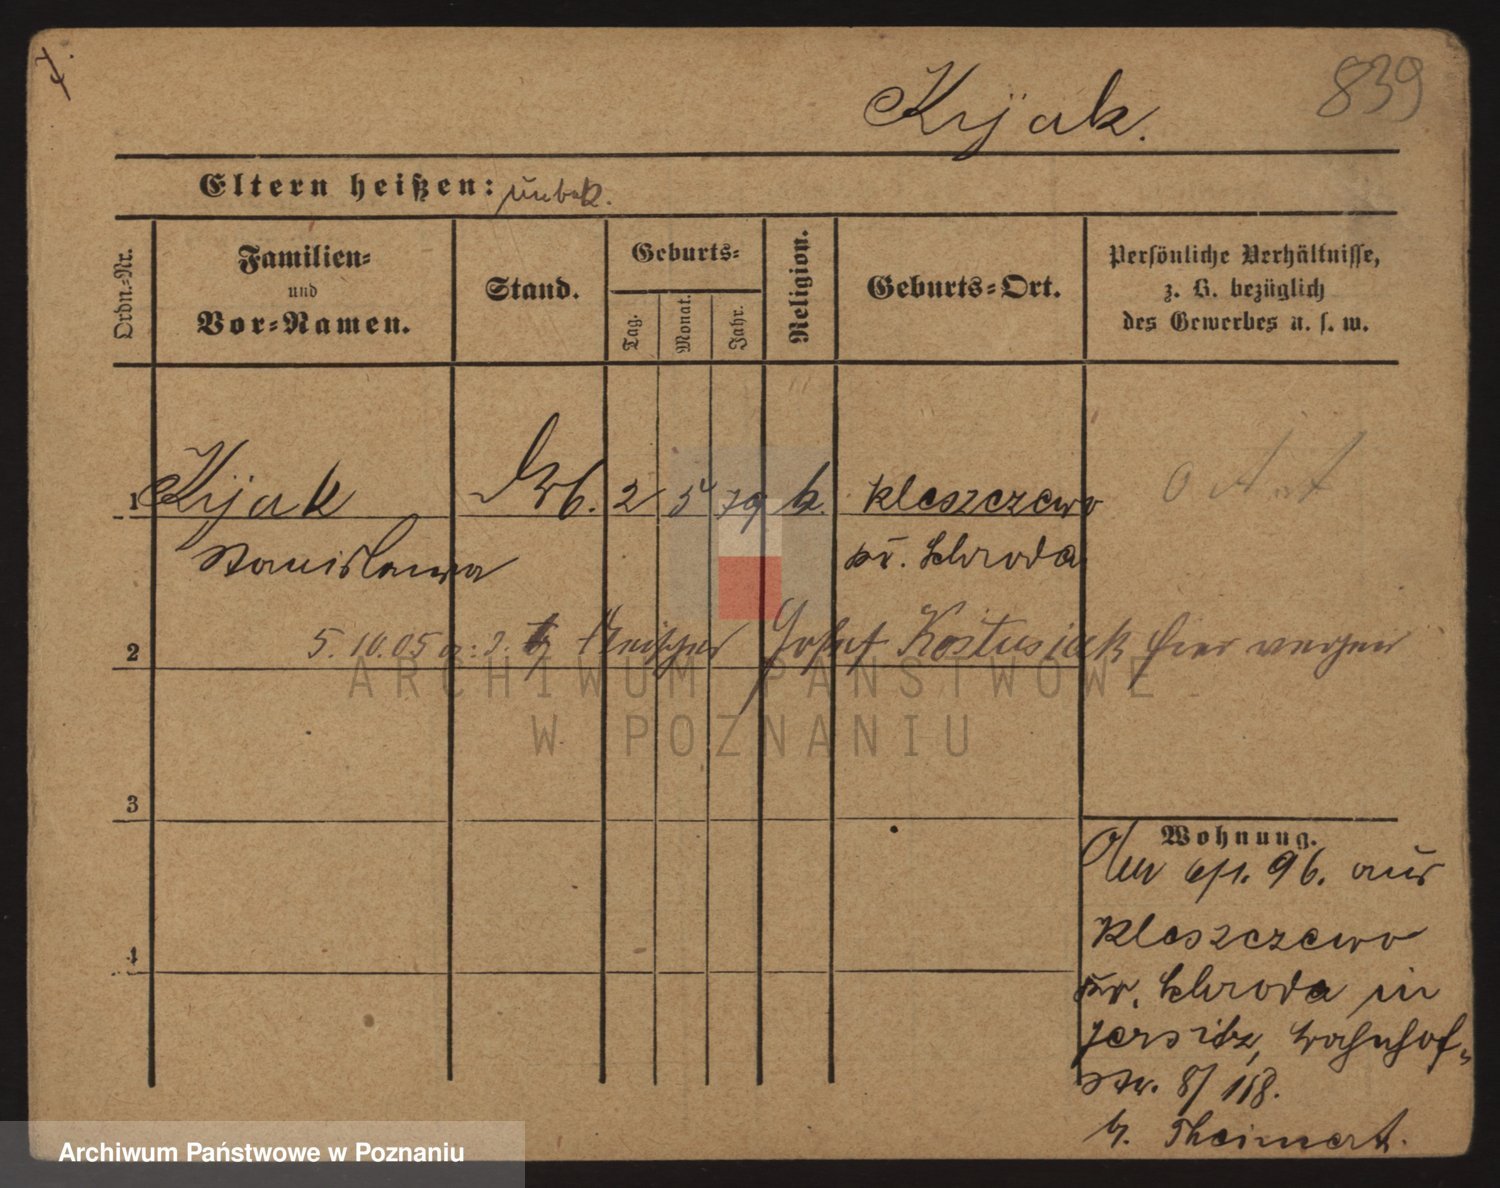 839
Kijak.
Eltern heißen: unbek.
Ordn.-Nr.
Familien-
und
Vor-Namen.
Stand.
Geburts-
Tag.
Monat.
Jahr.
Religion.
Geburts-Ort.
Persönliche Verhältnisse,
z. B. bezüglich
des Gewerbes u. s. w.
1 Kijak 2 5 79 k. Kleszczewo
Stanislawa Kr. Schroda
2 5. 10. 05 Josef Kostusiak hier
3
4
Wohnung.
Am 6/1. 96. aus
Kleszczewo
Kr. Schroda in
Jersitz, Bahnhof-
str. 8/
b. Theinert.
ARCHIWUM PAŃSTWOWE
W POZNANIU
Archiwum Państwowe w Poznaniu